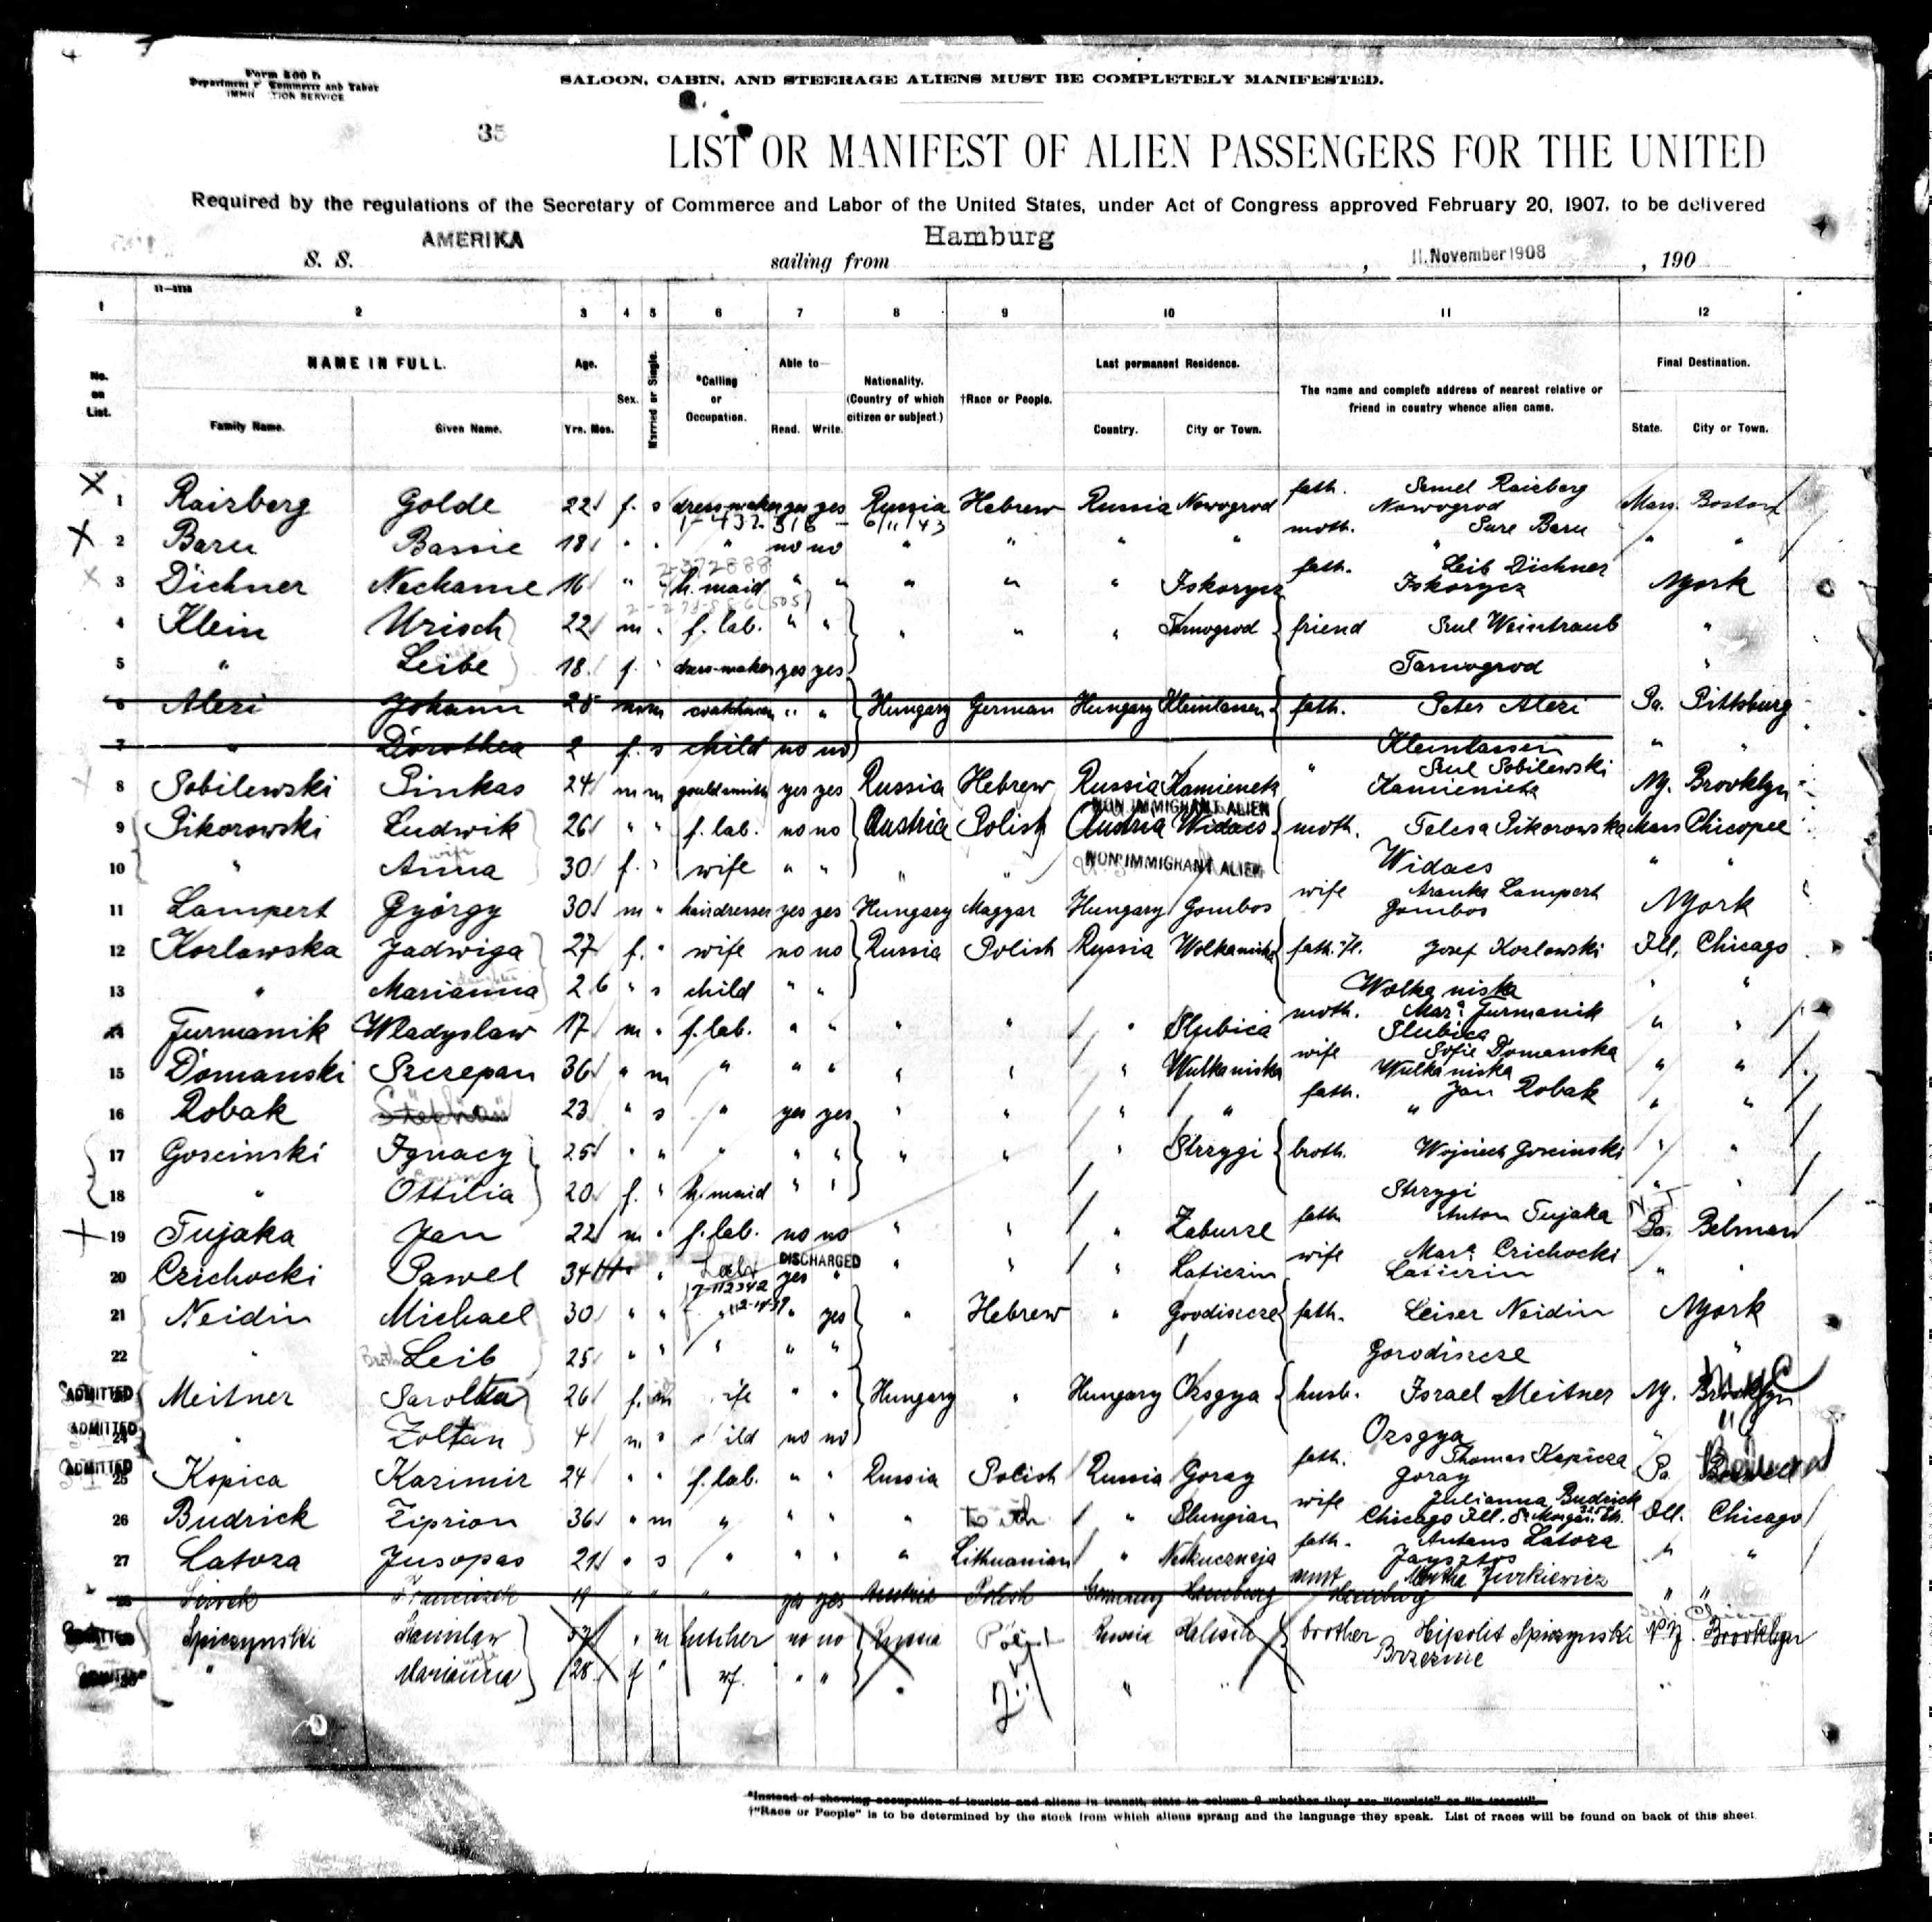 Form 500 B
Department of Commerce and Labor
IMMIGRATION SERVICE
SALOON, CABIN, AND STEERAGE ALIENS MUST BE COMPLETELY MANIFESTED.
35
LIST OR MANIFEST OF ALIEN PASSENGERS FOR THE UNITED
Required by the regulations of the Secretary of Commerce and Labor of the United States, under Act of Congress approved February 20, 1907, to be delivered
S. S. AMERIKA sailing from Hamburg, 11. November 1908, 190
1 2 3 4 5 6 7 8 9 10 11 12
No. on List. NAME IN FULL. Family Name. Given Name. Age. Yrs. Mos. Sex. Married or Single. *Calling or Occupation. Able to— Read. Write. Nationality. (Country of which citizen or subject.) †Race or People. Last permanent Residence. Country. City or Town. The name and complete address of nearest relative or friend in country whence alien came. Final Destination. State. City or Town.
1 Raizberg Golde 22 f. s dressmaker yes yes Russia Hebrew Russia Nowogrod fath. Raizberg Nowogrod Mass. Boston
2 Baru Bassie 18 " " " no no " " " " moth. Sure Baru " " "
3 Dichner Nechame 16 " " h. maid " " " " " Iskorycz fath. Leib Dichner Iskorycz NYork
4 Klein Urisch 22 m " f. lab. " " " " " Tarnogrod friend Srul Weintraub "
5 " Leibe 18 f. " dress-maker yes yes Tarnogrod "
6 Aleri Johann 28 m m " " Hungary German Hungary fath. Peter Aleri Pa. Pittsburg
7 " Dorothea 2 f. s child no no " "
8 Sobilewski Pinkas 24 m m gouldsmith yes yes Russia Hebrew Russia Kamienetz " Srul Sobilewski NY. Brooklyn
NON IMMIGRANT ALIEN
9 Pikorowski Ludwik 26 " " f. lab. no no Austria Polish Austria Widacs moth. Telesa Pikorowska Mass Chicopee
10 " Anna wife 30 f. " wife " " " " NON IMMIGRANT ALIEN Widacs " "
11 Lampert György 30 m " hairdresser yes yes Hungary Magyar Hungary Gombos wife Aranka Lampert Gombos NYork
12 Kozlawska Jadwiga 27 f. " wife no no Russia Polish Russia Wolkaniska Josef Kozlowski Ill. Chicago
13 " Marianna 2 6 " s child " " Wolkaniska " "
14 Furmanik Wladyslaw 17 m " f. lab. " " " " " Slubica moth. Mar. Furmanik Slubica " "
15 Domanski Szczepan 36 " m " " " " " " Wulkaniska wife Sofie Domanska Wulkaniska " "
16 Robak 23 " s " yes yes " " " " fath. Jan Robak " " "
17 Goscinski Ignacy 25 " " " " " " " " Strzygi broth. Wojciech Goscinski " "
18 " Ottilia 20 f. " h. maid " " Strzygi " "
19 Tujaka Jan 22 m " f. lab. no no " " " Zaburze fath. Anton Tujaka
20 Czichocki Pawel 34 " Lab DISCHARGED yes " " " " Laticzin wife Mar. Czichocki Laticzin " "
21 Neidin Michael 30 " " " " yes " Hebrew " fath. Leiser Neidin NYork
22 " Leib 25 " " " " " Gorodiszcze "
ADMITTED Meitner Sarolta 26 f. m " " Hungary " Hungary Ozsgya husb. Israel Meitner NY. Brooklyn
ADMITTED 24 " Zoltan 4 m s no no Ozsgya " "
ADMITTED 25 Kopica Kazimir 24 " " f. lab. " " Russia Polish Russia Goray fath. Thomas Kapicza Goray Pa.
26 Budrick Ziprion 36 " m " " " " " wife Julianna Budrick Chicago Ill. Ill. Chicago
27 Latoza Jusopas 21 " s " " " " Lithuanian " fath. Antans Latoza " "
Franciszek 19 " " " yes yes Austria Polish Germany Hamburg aunt Martha Jurkiewicz Hamburg " "
Spiczynski Stanislaw m butcher no no Russia Polish Russia Kalisch brother Hipolit Spiczynski N.Y. Brooklyn
" Marianna wife 28 f " wf. " " " " " " "
*Instead of showing occupation of tourists and aliens in transit, state in column 6 whether they are "tourists" or "in transit".
†"Race or People" is to be determined by the stock from which aliens sprang and the language they speak. List of races will be found on back of this sheet.